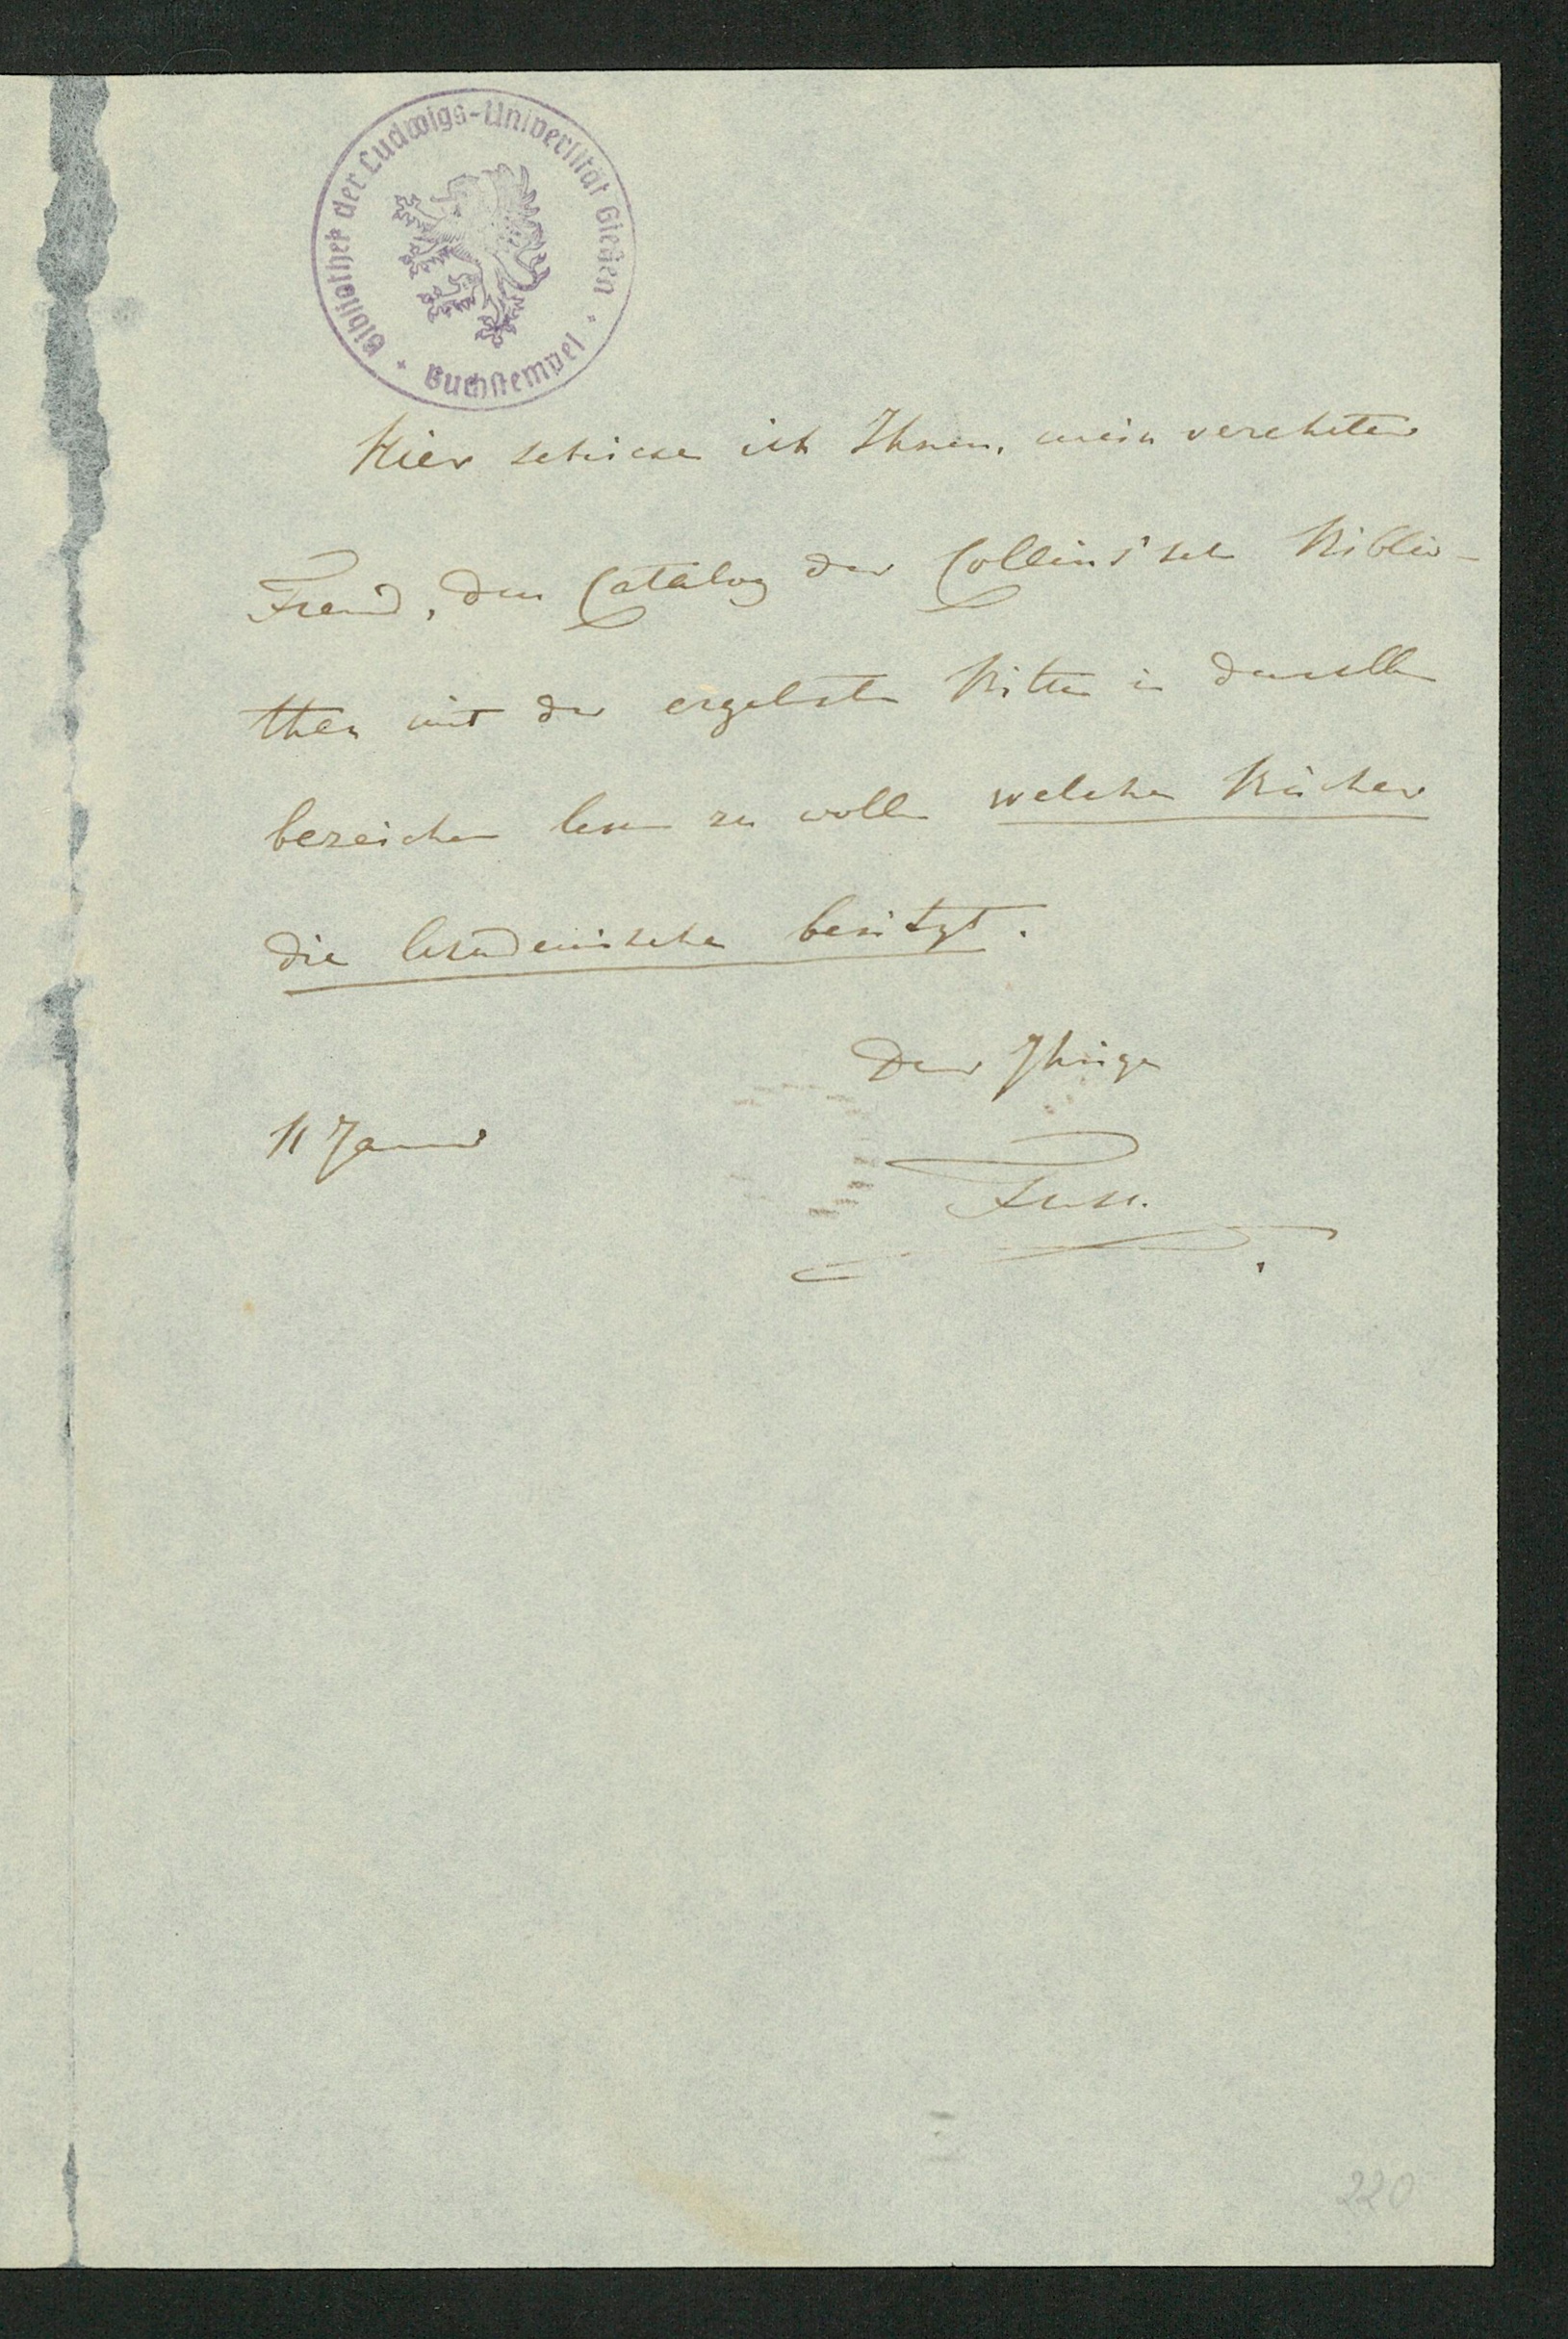 Bibliothek der Ludwigs-Universität Gießen
Buchstempel
Hier schicke ich Ihnen, mein verehrter
Freund, den Catalog der Collins'schen Biblio-
thek mit der ergebensten Bitte in demselben
bezeichnen lassen zu wollen welche Bücher
die Akademische besitzt.
Der Ihrige
11 Januar
Fuss.
220